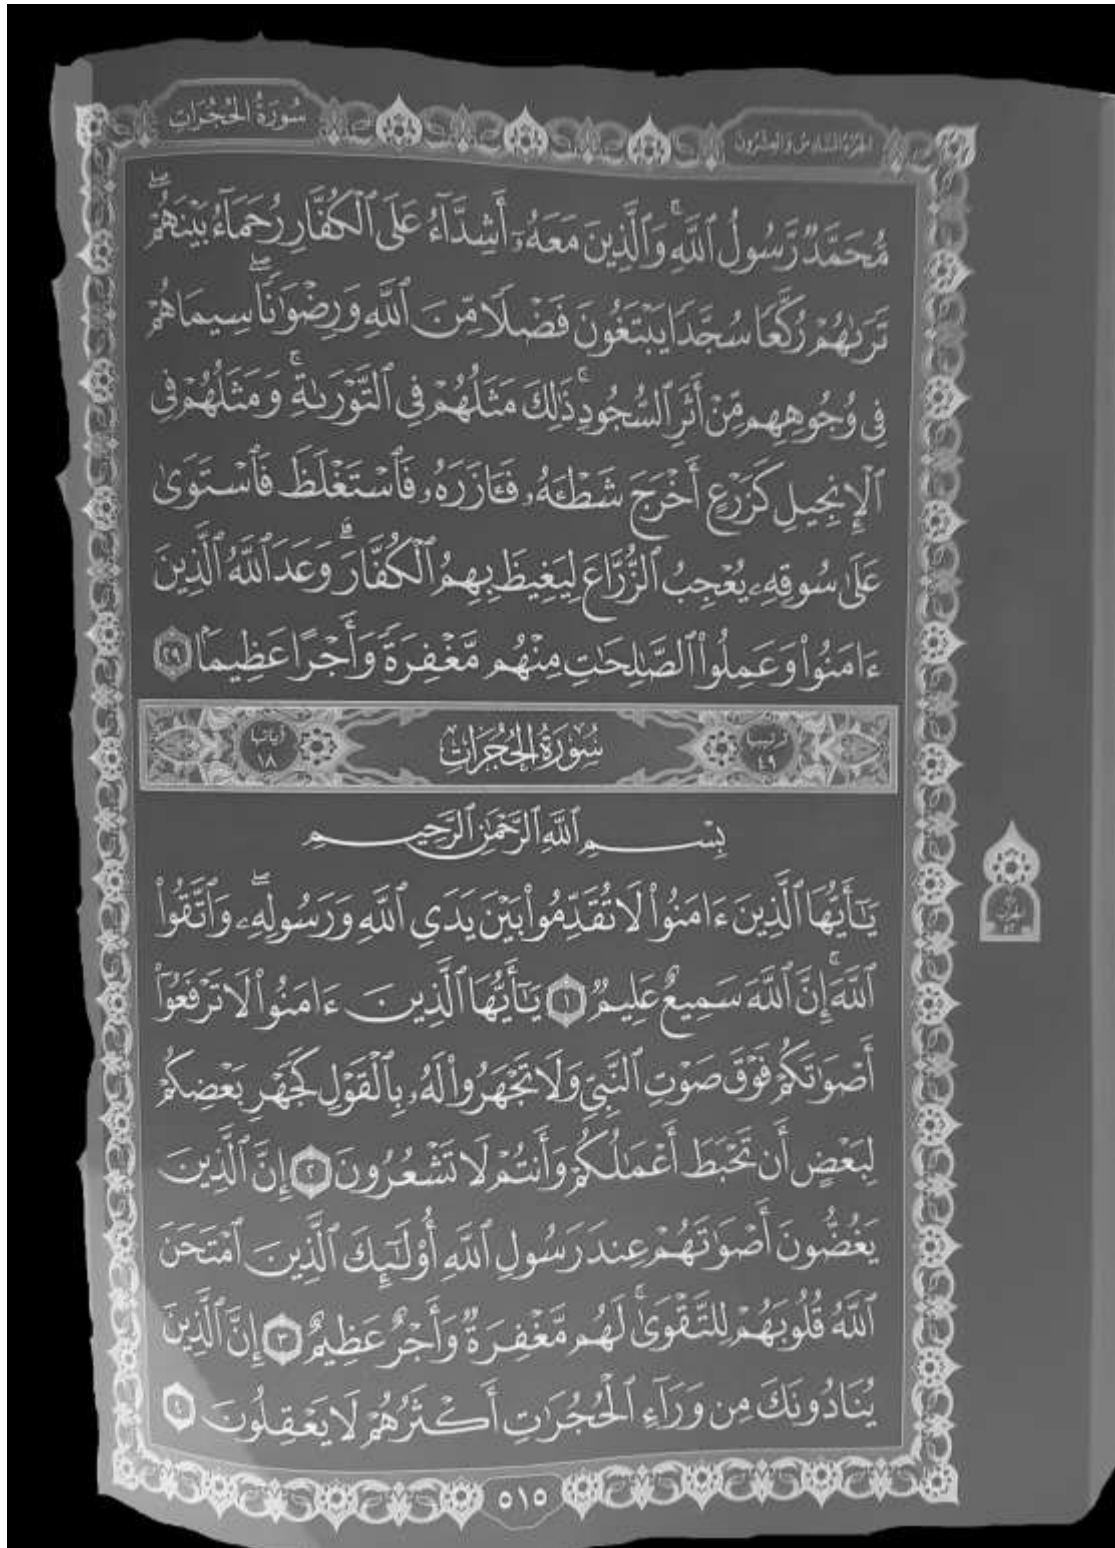 سُورَةُ الْحُجُرَاتِ
الجُزْءُ السَّادِسُ وَالعِشْرُونَ
مُّحَمَّدٌ رَّسُولُ ٱللَّهِۚ وَٱلَّذِينَ مَعَهُۥٓ أَشِدَّآءُ عَلَى ٱلْكُفَّارِ رُحَمَآءُ بَيْنَهُمْۖ
تَرَىٰهُمْ رُكَّعًا سُجَّدًا يَبْتَغُونَ فَضْلًا مِّنَ ٱللَّهِ وَرِضْوَٰنًاۖ سِيمَاهُمْ
فِى وُجُوهِهِم مِّنْ أَثَرِ ٱلسُّجُودِۚ ذَٰلِكَ مَثَلُهُمْ فِى ٱلتَّوْرَىٰةِۚ وَمَثَلُهُمْ فِى
ٱلْإِنجِيلِ كَزَرْعٍ أَخْرَجَ شَطْـَٔهُۥ فَـَٔازَرَهُۥ فَٱسْتَغْلَظَ فَٱسْتَوَىٰ
عَلَىٰ سُوقِهِۦ يُعْجِبُ ٱلزُّرَّاعَ لِيَغِيظَ بِهِمُ ٱلْكُفَّارَۗ وَعَدَ ٱللَّهُ ٱلَّذِينَ
ءَامَنُوا۟ وَعَمِلُوا۟ ٱلصَّٰلِحَٰتِ مِنْهُم مَّغْفِرَةً وَأَجْرًا عَظِيمًۢا ٢٩
ترتيبها ٤٩ سُورَةُ الْحُجُرَاتِ آياتها ١٨
بِسْمِ ٱللَّهِ ٱلرَّحْمَٰنِ ٱلرَّحِيمِ
يَٰٓأَيُّهَا ٱلَّذِينَ ءَامَنُوا۟ لَا تُقَدِّمُوا۟ بَيْنَ يَدَىِ ٱللَّهِ وَرَسُولِهِۦۖ وَٱتَّقُوا۟
ٱللَّهَۚ إِنَّ ٱللَّهَ سَمِيعٌ عَلِيمٌ ١ يَٰٓأَيُّهَا ٱلَّذِينَ ءَامَنُوا۟ لَا تَرْفَعُوٓا۟
أَصْوَٰتَكُمْ فَوْقَ صَوْتِ ٱلنَّبِىِّ وَلَا تَجْهَرُوا۟ لَهُۥ بِٱلْقَوْلِ كَجَهْرِ بَعْضِكُمْ
لِبَعْضٍ أَن تَحْبَطَ أَعْمَٰلُكُمْ وَأَنتُمْ لَا تَشْعُرُونَ ٢ إِنَّ ٱلَّذِينَ
يَغُضُّونَ أَصْوَٰتَهُمْ عِندَ رَسُولِ ٱللَّهِ أُو۟لَٰٓئِكَ ٱلَّذِينَ ٱمْتَحَنَ
ٱللَّهُ قُلُوبَهُمْ لِلتَّقْوَىٰۚ لَهُم مَّغْفِرَةٌ وَأَجْرٌ عَظِيمٌ ٣ إِنَّ ٱلَّذِينَ
يُنَادُونَكَ مِن وَرَآءِ ٱلْحُجُرَٰتِ أَكْثَرُهُمْ لَا يَعْقِلُونَ ٤
٥١٥